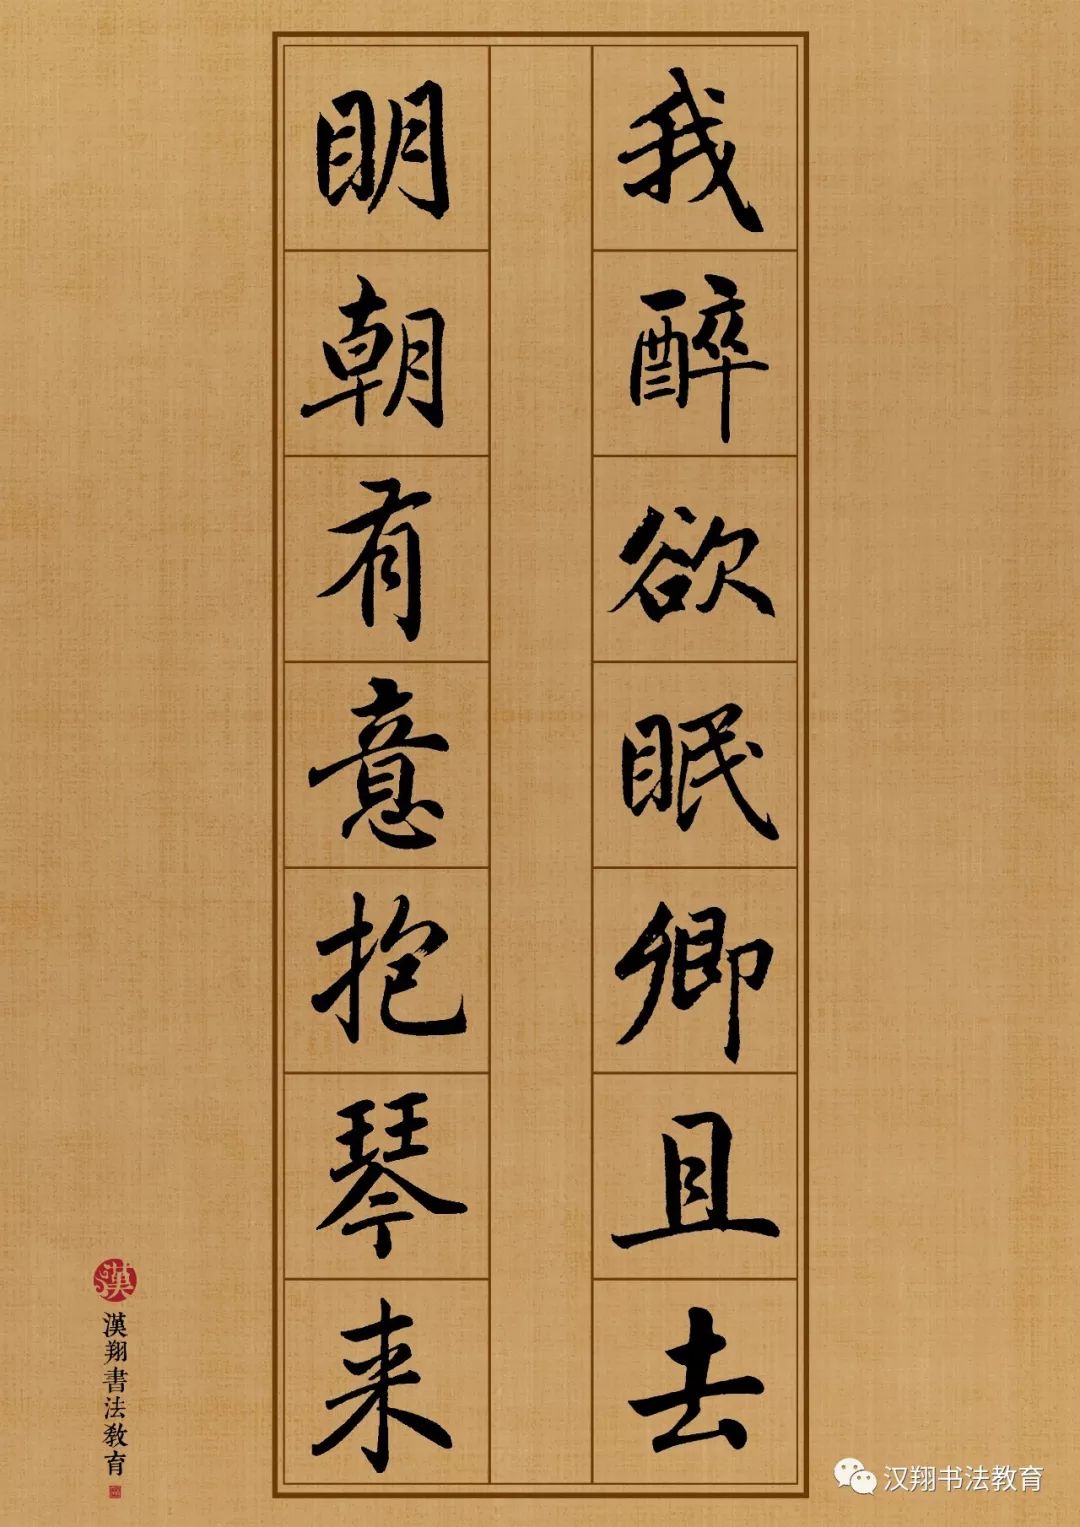 我醉欲眠卿且去
明朝有意抱琴来
漢
漢翔書法教育
汉翔书法教育